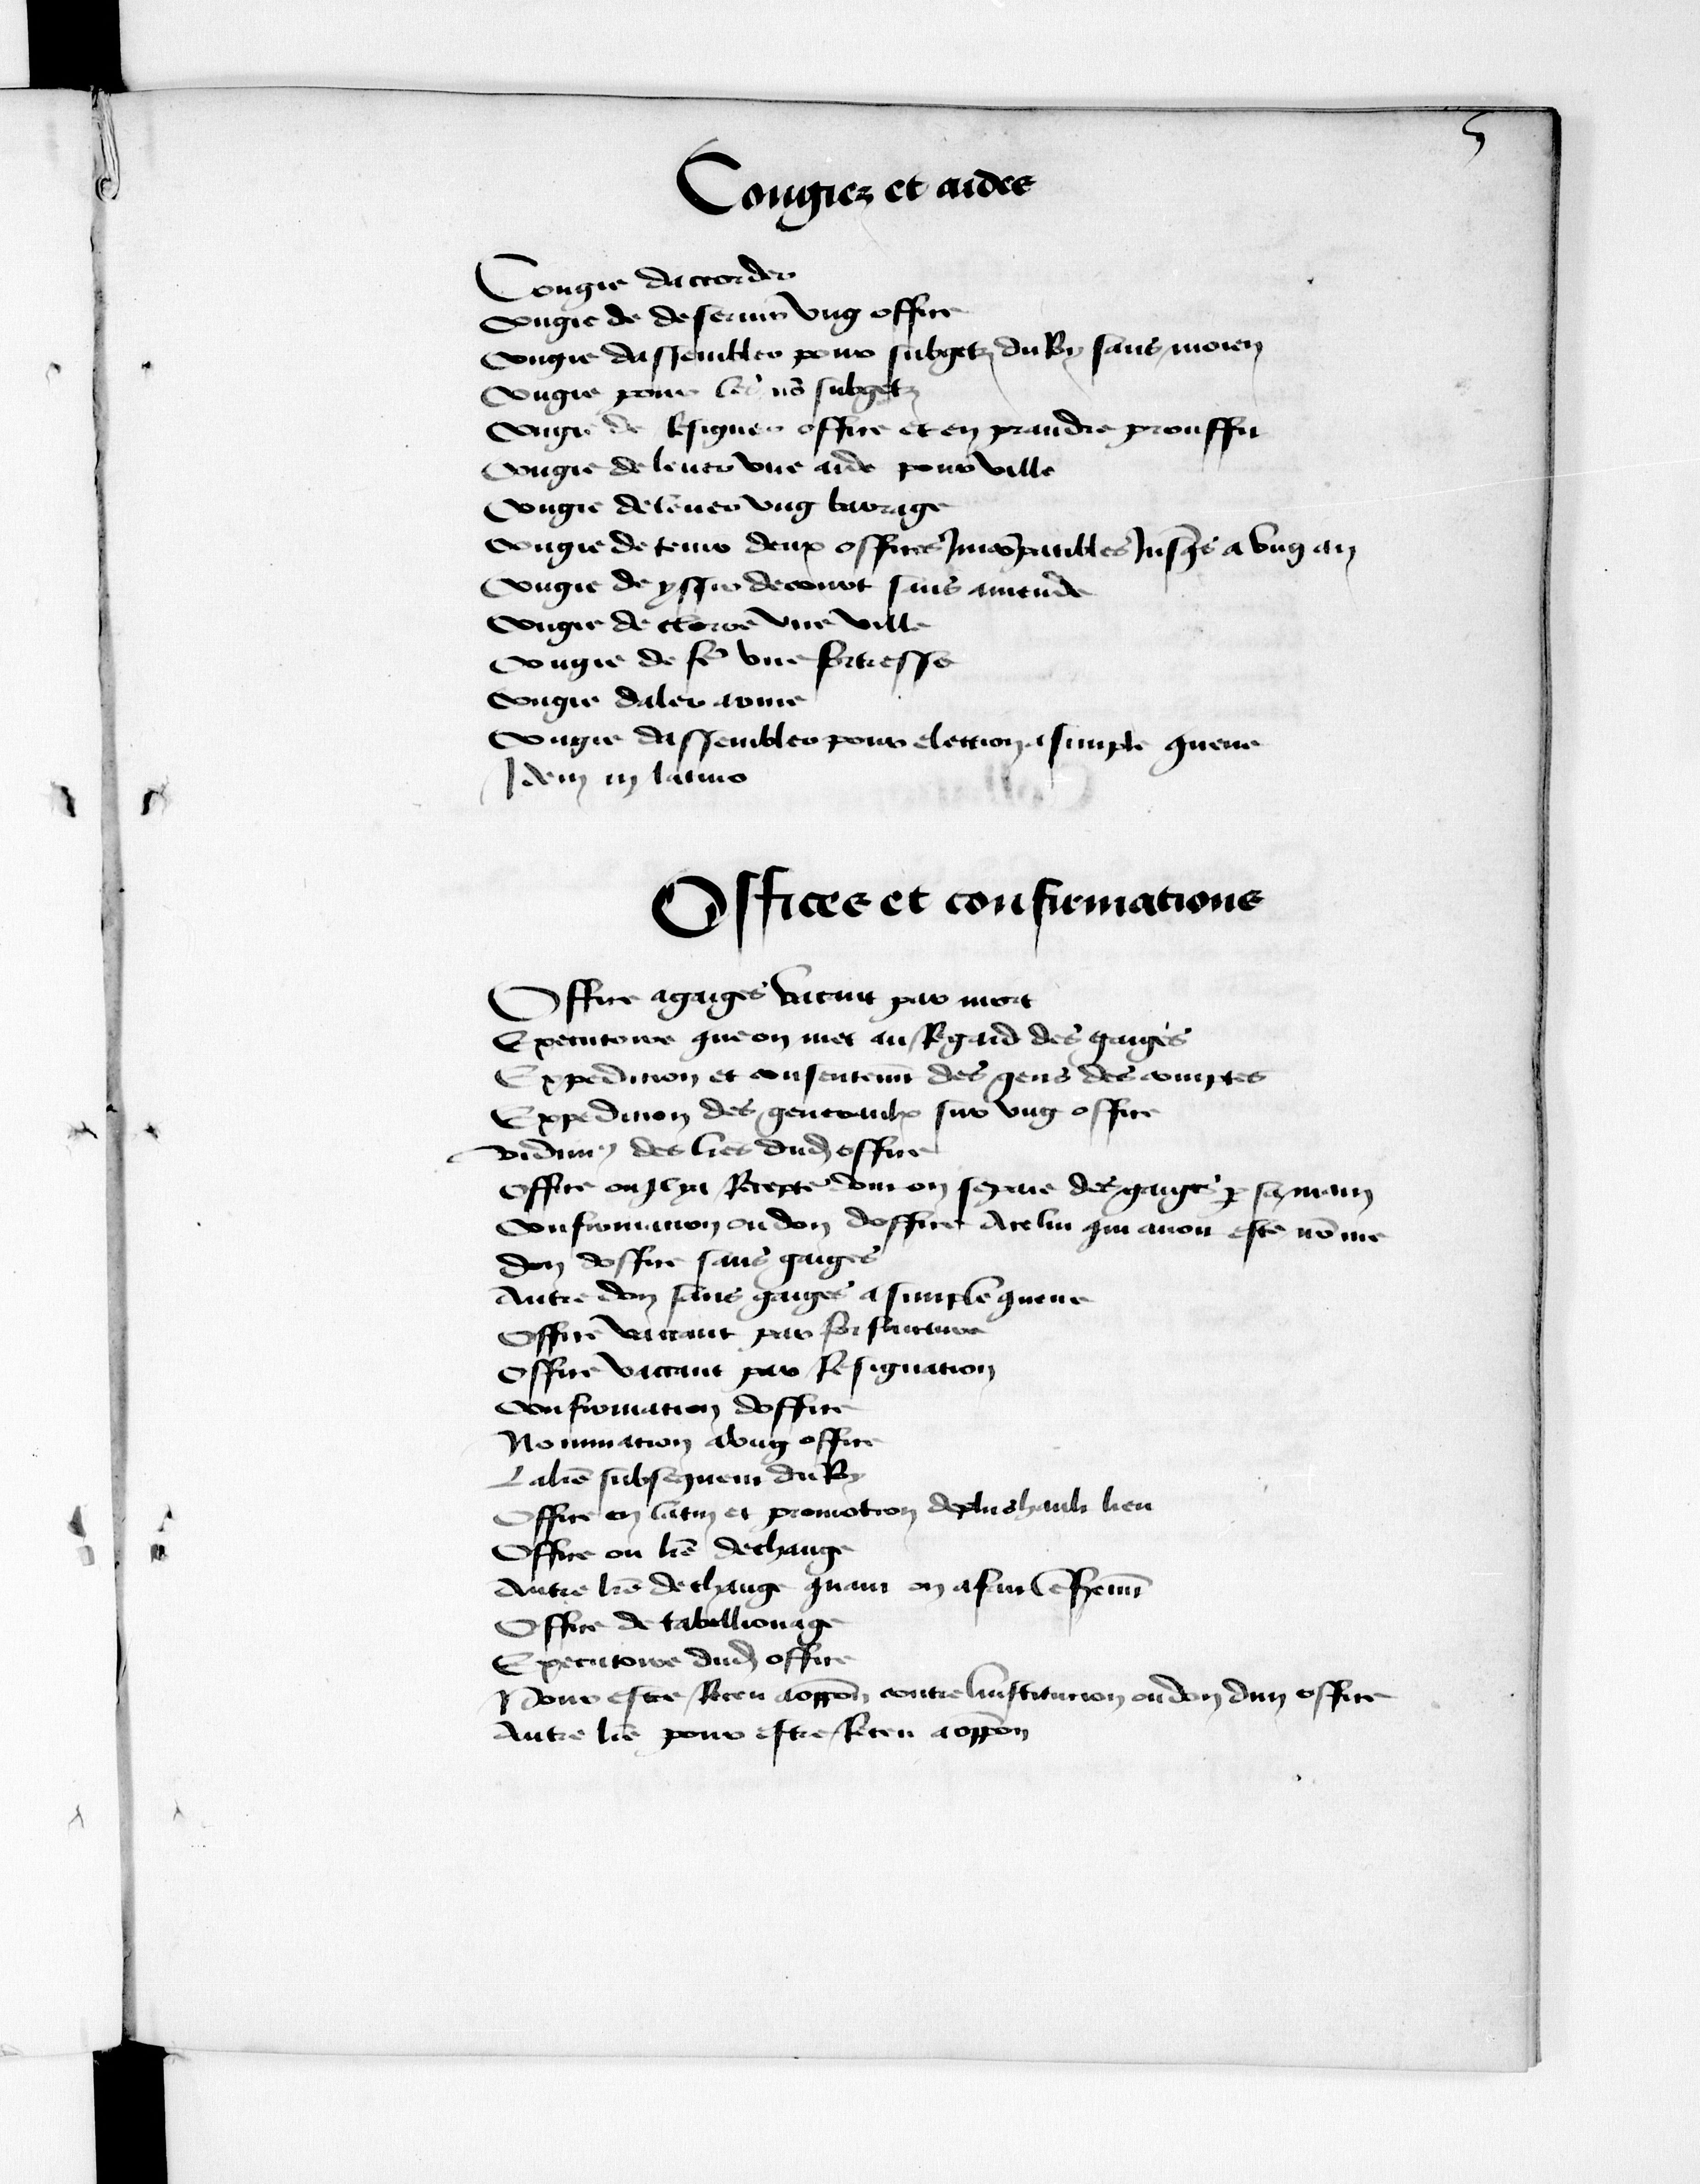 5
Congiez et aides
Congie daccorder
Congie de deservir vng office
Congie dassembler pour subgetz du Roy sans moien
Congie pour les nōs subgetz
Congie de Resigner office et en prandre prouffit
Congie de leuer vne aide pour ville
Congie de leuer vng barrage
Congie de tenir deux offices Incōpatibles Jusqs a vng an
Congie de yssir de court sans amende
Congie de clorre vne ville
Congie de fē vne fortresse
Congie daler arme
Congie dassembler pour election a simple queue
Idem in latino
Offices et confirmations
Office a gaiges vacant par mort
Executoire que on met au Regard des gaiges
Expedition et consentemt des gens des comptes
Expedition des generaulx sur vng office
Vidimus des lres dud office
Office ou Il ya Recepte dont on se paie des gaiges p sa main
Confirmation ou don doffice A celui qui auoit este nōme
Don doffice sans gaiges
Autre don sans gaiges a simple queue
Office vaccant par forfaiture
Office vaccant par Resignation
Confirmation doffice
Nominacion a vng office
La lrē subsequent du Roy
Office en latin et promotion de plus hault lieu
Office ou lrē de change
Autre lrē de change quant on a fait
Office de tabellionage
Executoire dud office
Pour estre Receu a oppōn contre linstitucion ou don dun office
Autre lrē pour estre Receu a oppōn